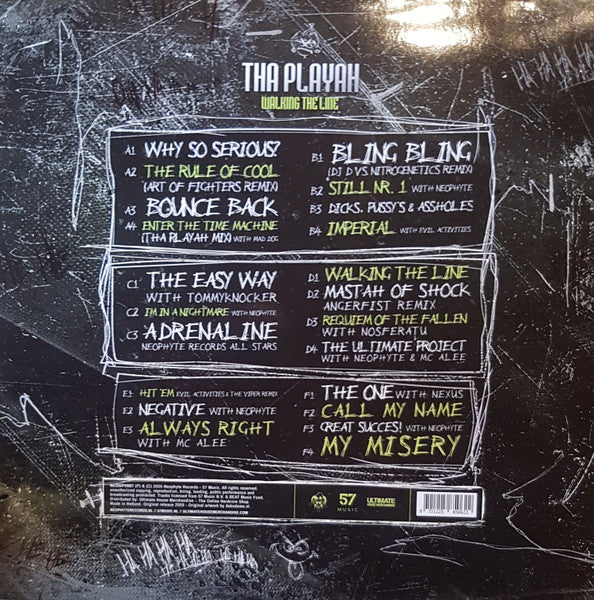 THA PLAYAH
WALKING THE LINE
A1 WHY SO SERIOUS?
A2 THE RULE OF COOL
(ART OF FIGHTERS REMIX)
A3 BOUNCE BACK
A4 ENTER THE TIME MACHINE
(THA PLAYAH MIX) WITH MAD DOG
B1 BLING BLING
(DJ D VS NITROGENETICS REMIX)
B2 STILL NR. 1 WITH NEOPHYTE
B3 DICKS, PUSSY'S & ASSHOLES
B4 IMPERIAL WITH EVIL ACTIVITIES
C1 THE EASY WAY
WITH TOMMYKNOCKER
C2 I'M IN A NIGHTMARE WITH NEOPHYTE
C3 ADRENALINE
NEOPHYTE RECORDS ALL STARS
D1 WALKING THE LINE
D2 MASTAH OF SHOCK
ANGERFIST REMIX
D3 REQUIEM OF THE FALLEN
WITH NOSFERATU
D4 THE ULTIMATE PROJECT
WITH NEOPHYTE & MC ALEE
E1 HIT 'EM EVIL ACTIVITIES & THE VIPER REMIX
E2 NEGATIVE WITH NEOPHYTE
E3 ALWAYS RIGHT
WITH MC ALEE
F1 THE ONE WITH NEXUS
F2 CALL MY NAME
F3 GREAT SUCCES! WITH NEOPHYTE
F4 MY MISERY
57
MUSIC
ULTIMATE
HA HA HA HA